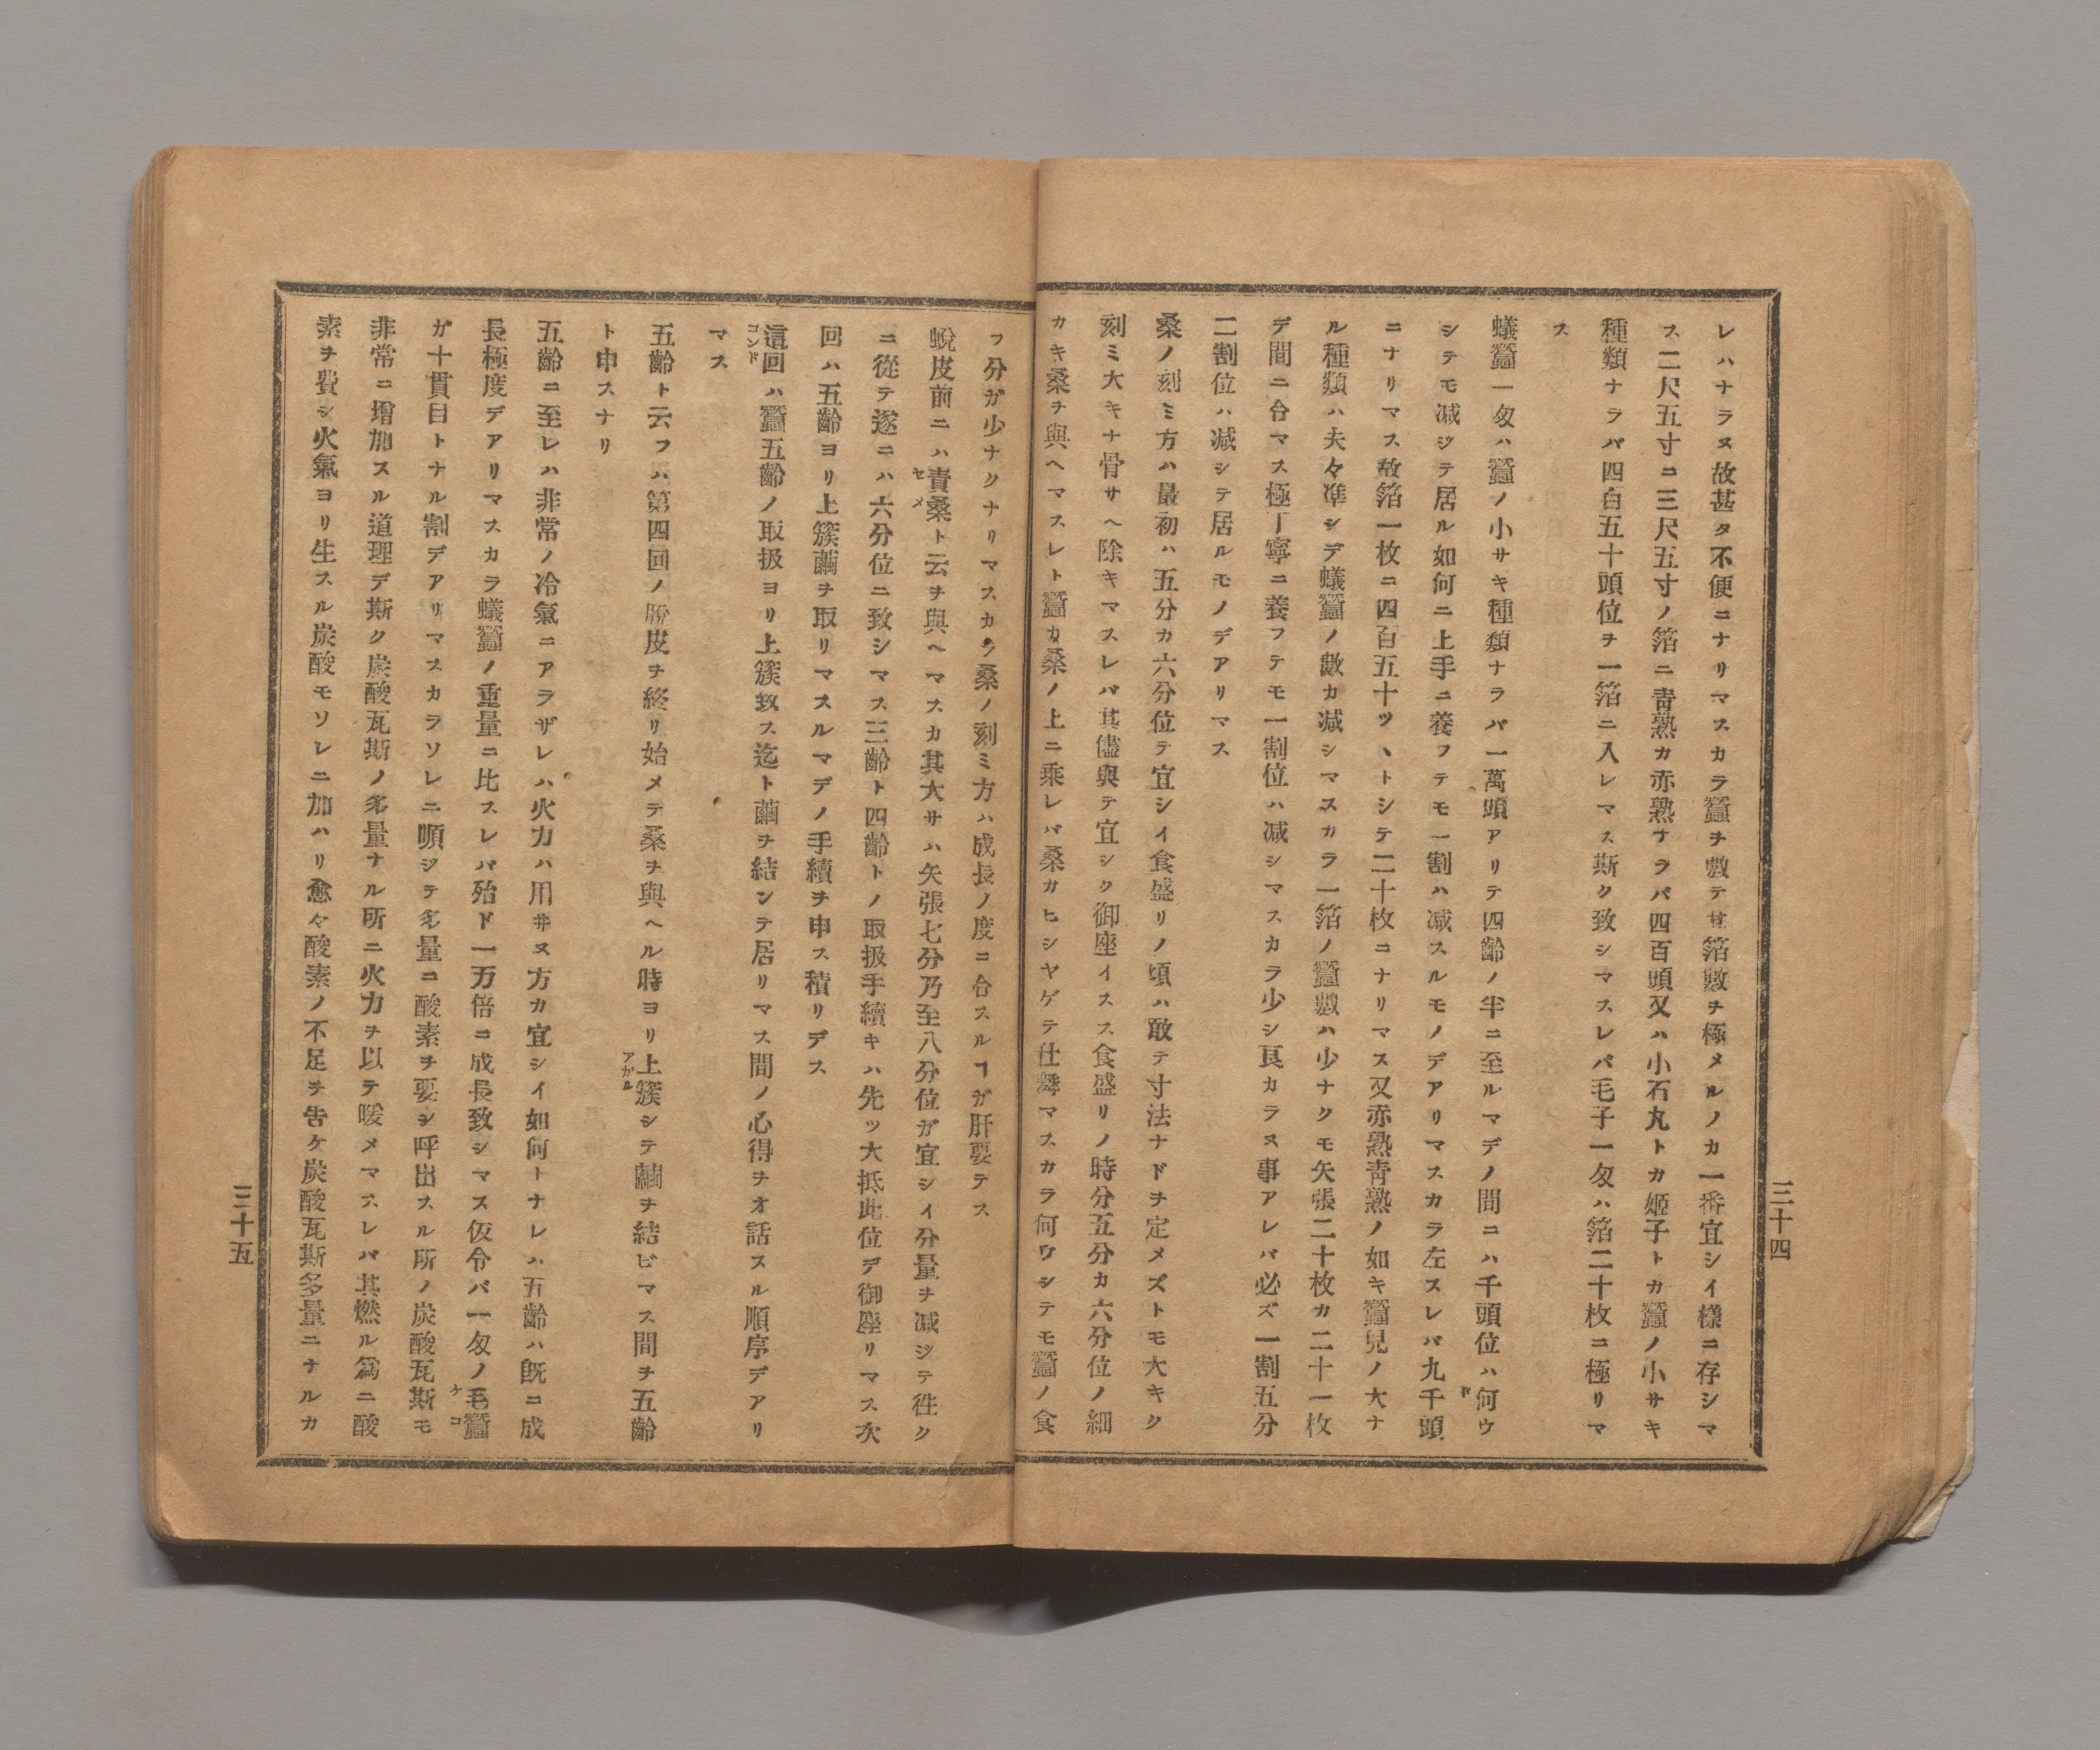 レハナラヌ故甚タ不便ニナリマスカラ蠶ヲ數テ其箔數ヲ極メルノカ一番宜シイ樣ニ存シマ
ス二尺五寸ニ三尺五寸ノ箔ニ靑熟カ赤熟ナラバ四百頭又ハ小石丸トカ姬子トカ蠶ノ小サキ
種類ナラバ四百五十頭位ヲ一箔ニ入レマス斯ク致シマスレバ毛子一匁ハ箔二十枚ニ極リマ
ス
蟻蠶一匁ハ蠶ノ小サキ種類ナラバ一萬頭アリテ四齡ノ半ニ至ルマデノ間ニハ千頭位ハ何ウ
シテモ減ジテ居ル如何ニ上手ニ養フテモ一割ハ減スルモノデアリマスカラ左スレバ九千頭
ニナリマス故箔一枚ニ四百五十ツヽトシテ二十枚ニナリマス又赤熟靑熟ノ如キ蠶兒ノ大ナ
ル種類ハ夫々準シデ蟻蠶ノ數カ减シマスカラ一箔ノ蠶數ハ少ナクモ矢張二十枚カ二十一枚
デ間ニ合マス極丁寧ニ養フテモ一割位ハ减シマスカラ少シ良カラヌ事アレバ必ズ一割五分
二割位ハ减シテ居ルモノデアリマス
桑ノ刻ミ方ハ最初ハ五分カ六分位テ宜シイ食盛リノ頃ハ敢テ寸法ナドヲ定メズトモ大キク
刻ミ大キナ骨サヘ除キマスレバ其儘與テ宜シク御座イスス食盛リノ時分五分カ六分位ノ細
カキ桑ヲ與ヘマスレト蠶カ桑ノ上ニ乘レバ桑カヒシヤゲテ仕舞マスカラ何ウシテモ蠶ノ食
三十四
フ分ガ少ナクナリマスカラ桑ノ刻ミ方ハ成長ノ度ニ合スルヿガ肝要テス
蛻皮前ニハ責桑セメト云ヲ與ヘマスカ其大サハ矢張七分乃至八分位ガ宜シイ分量ヲ减ジテ徃ク
ニ從テ遂ニハ六分位ニ致シマス三齡ト四齡トノ取扱手續キハ先ッ大抵此位デ御座リマス次
回ハ五齡ヨリ上簇繭ヲ取リマスルマデノ手續ヲ申ス積リデス
這回コンドハ蠶五齡ノ取扱ヨリ上簇致ス迄ト繭ヲ結ンテ居リマス間ノ心得ヲオ話スル順序デアリ
マス
五齡ト云フハ第四回ノ脫皮ヲ終リ始メテ桑ヲ與ヘル時ヨリ上簇アガルシテ繭ヲ結ビマス間ヲ五齡
ト申スナリ
五齡ニ至レハ非常ノ冷氣ニアラザレハ火力ハ用井ヌ方カ宜シイ如何トナレハ五齡ハ旣ニ成
長極度デアリマスカラ蟻蠶ノ重量ニ比スレバ殆ド一万倍ニ成長致シマス仮令バ一匁ノ毛蠶ケコ
ガ十貫目トナル割デアリマスカラソレニ順ジテ多量ニ酸素ヲ要シ呼出スル所ノ炭酸瓦斯モ
非常ニ增加スル道理デ斯ク炭酸瓦斯ノ多量ナル所ニ火力ヲ以テ暖メマスレバ其燃ル爲ニ酸
素ヲ費シ火氣ヨリ生スル炭酸モソレニ加ハリ愈々酸素ノ不足ヲ告ケ炭酸瓦斯多量ニナルカ
三十五